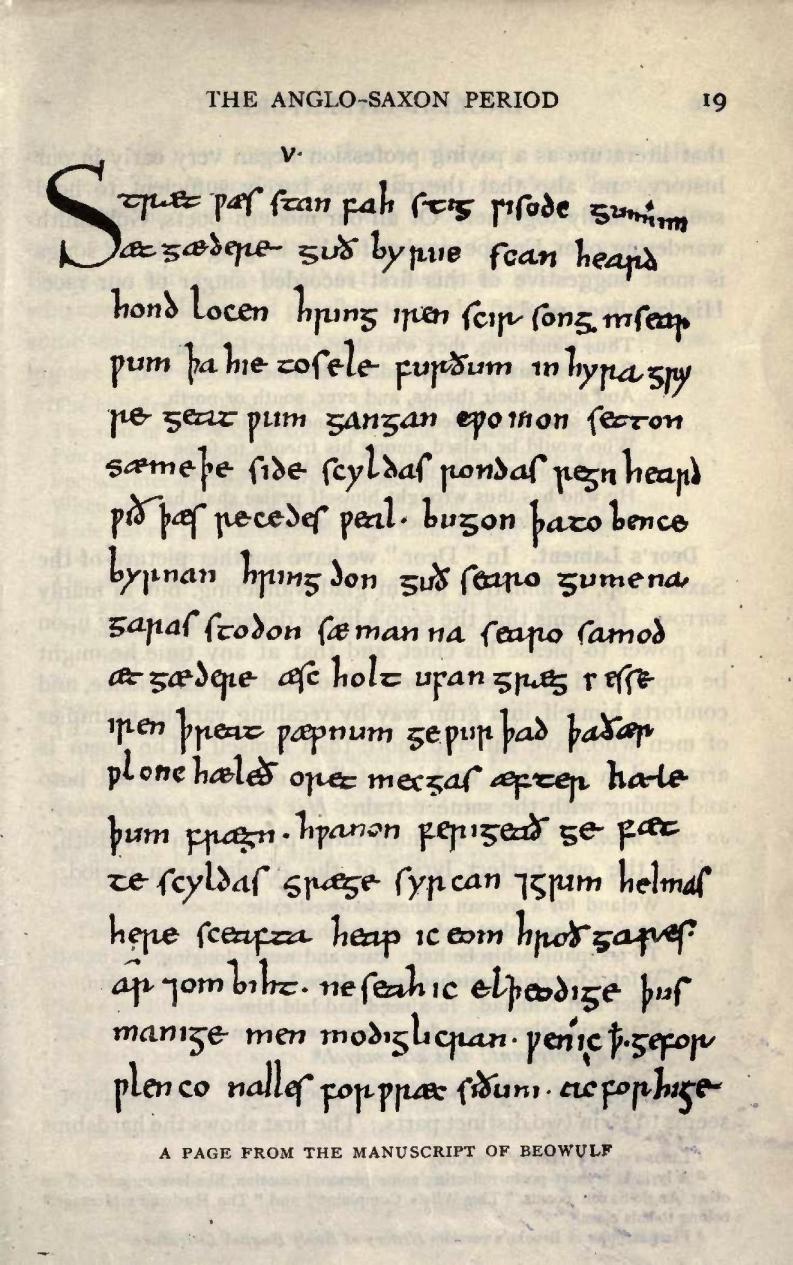 THE ANGLO-SAXON PERIOD 19
V·
Strǣt ƿæs stan fah stig ƿisode gumum
ætgædere guð byrne scan heard
hond locen hring iren scir song in sear
ƿum þa hie to sele furðum in hyra gry
re geat ƿum gangan cƿomon setton
sæmeþe side scyldas rondas regn heard
ƿið þæs recedes ƿeal · bugon þa to bence
byrnan hring don guð searo gumena
garas stodon sæ man na searo samod
æt gædere æsc holt ufan græg ƿ esse
iren þreat ƿæpnum ge ƿur þad þa ðær
ƿlonc hæleð oret mecgas æfter hæle
þum frægn · hƿanon ferigeað ge fæt
te scyldas græge syrcan ⁊grim helmas
here sceafta heap ic eom hroð gares·
ar ⁊om biht · ne seah ic elþeodige þus
manige men modiglicran · ƿen ic ꝥ · ge for
ƿlen co nalles for ƿræc siðum · ac for hige
A PAGE FROM THE MANUSCRIPT OF BEOWULF